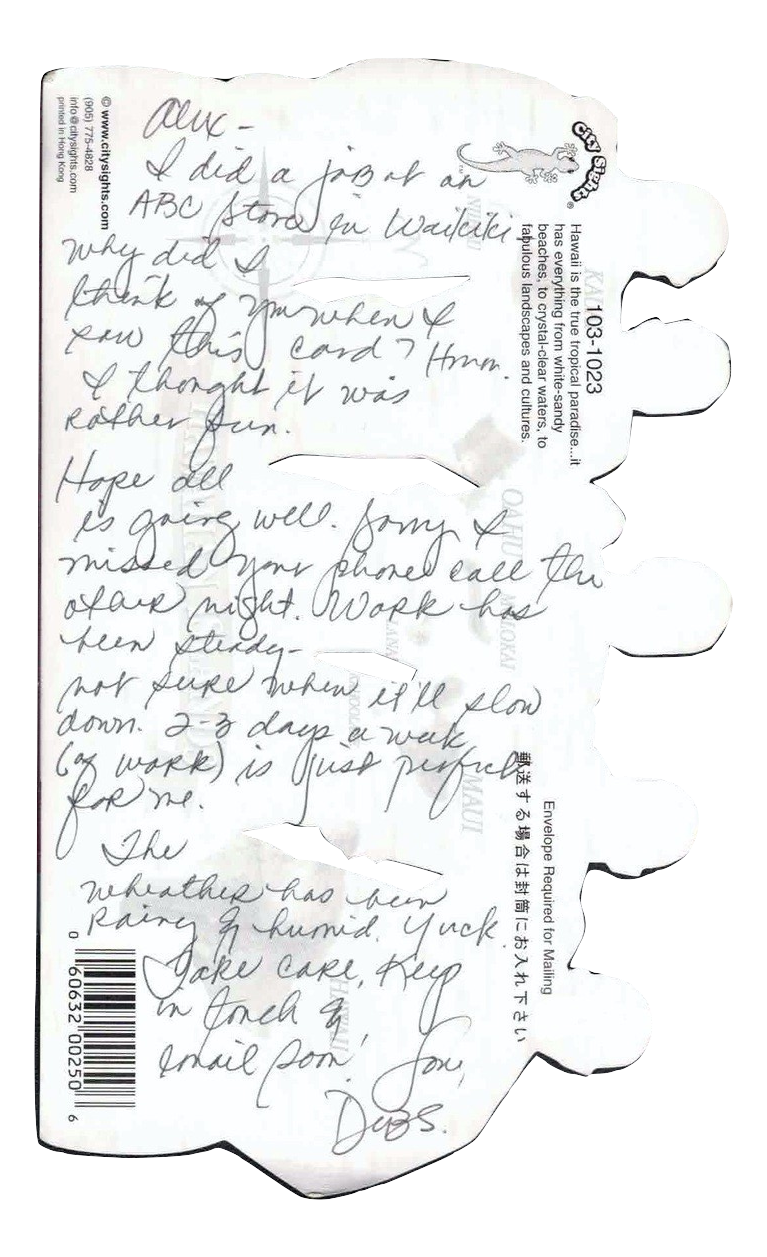 Alex -
I did a job at an
ABC Store in Waikiki
Why did I
think of you when I
saw this card? Hmm.
I thought it was
Rather fun.
Hope all
is going well. Sorry I
missed your phone call the
other night. Work has
been steady -
not sure when it'll slow
down. 2-3 days a week
(of work) is just perfect
for me.
The
wheather has been
Rainy & humid. Yuck.
Take care, Keep
in touch &
email soon!
Love,
Debs.
City Sights®
Hawaii is the true tropical paradise...it
has everything from white-sandy
beaches, to crystal-clear waters, to
fabulous landscapes and cultures.
103-1023
Envelope Required for Mailing
郵送する場合は封筒にお入れ下さい
© www.citysights.com
(905) 775-4828
info@citysights.com
printed in Hong Kong
0 60632 00250 6
NIIHAU
OAHU
MOLOKAI
LANAI
MAUI
HAWAII